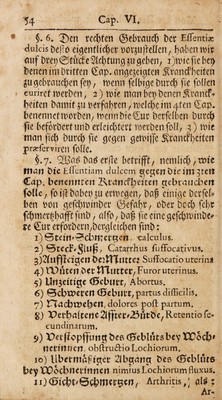 54 Cap. VI.
§. 6. Den rechten Gebrauch der Essentiæ
dulcis desto eigentlicher vorzustellen, haben wir
auf drey Stücke Achtung zu geben, 1) wie sie bey
denen im dritten Cap. angezeigten Kranckheiten
zu gebrauchen sey, wenn selbige durch sie sollen
curiret werden, 2) wie man bey denen Kranckhei-
ten damit zu verfahren, welche im 4ten Cap. be-
nennet worden, wenn die Cur derselben durch
sie befördert und erleichtert werden soll, 3) wie
man sich durch sie gegen gewisse Kranckheiten
præserviren solle.
§. 7. Was das erste betrifft, nemlich, wie
man die Essentiam dulcem gegen die im 3ten
Cap. benennten Kranckheiten gebrauchen
solle, so ist dabey zu erwegen, daß einige dersel-
ben von geschwinder Gefahr, oder doch sehr
schmertzhafft sind, also, daß sie eine geschwinde-
re Cur erfordern, dergleichen sind:
1) Stein-Schmertzen, calculus.
2) Steck-Fluß, Catarrhus suffocativus.
3) Auffsteigen der Mutter Suffocatio uterina
4) Wüten der Mutter, Furor uterinus.
5) Unzeitige Geburt, Abortus.
6) Schweren Geburt, partus difficilis.
7) Nachwehen, dolores post partum.
8) Verhaltene After-Bürde, Retentio se-
cundinarum.
9) Verstopffung des Geblüts bey Wöch-
nerinnen, obstructio Lochiorum.
10) Ubermäßiger Abgang des Geblüts
bey Wöchnerinnen nimius Lochiorum fluxus.
11) Gicht-Schmertzen, Arthritis, als:
Ar-